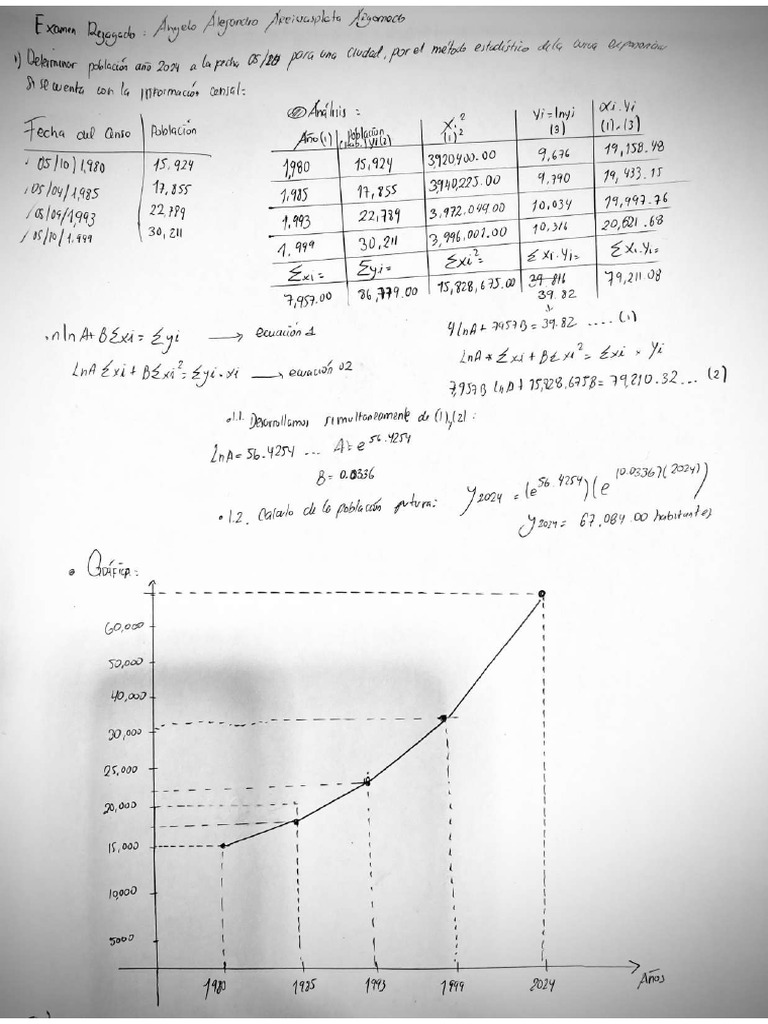 Examen Rezagado: Angelo Alejandro
1) Determinar población año 2024 a la fecha 05/ para una ciudad, por el método estadístico de la curva exponencial
Si se cuenta con la información censal:
Fecha del Censo Población
05/10/1,980 15,924
05/04/1,985 17,855
05/09/1,993 22,789
05/10/1.999 30,211
Análisis:
Año(1) Población Yi(2) Xi² (1)² Yi=lnyi (3) Xi.Yi (1).(3)
1,980 15,924 3920400.00 9,676 19,158.48
1,985 17,855 3,940,225.00 9,790 19,433.15
1,993 22,789 3,972.049.00 10,034 19,997.76
1.999 30,211 3,996,001.00 10,316 20,621.68
Σxi= Σyi= Σxi²= Σxi.Yi= Σxi.Yi=
7,957.00 86,779.00 15,828,675.00 39.816 79,211.08
39.82
nlnA+BΣxi=Σyi → ecuación 1
LnAΣxi+BΣxi²=Σyi.xi → ecuación 02
4lnA+7957B=39.82 ....(1)
LnA*Σxi+BΣxi²=Σxi*Yi
7,957B LnA+15,828,675B=79,210.32...(2)
1.1. Desarrollamos simultaneamente de (1)y(2):
LnA=56.4254 ... A=e^56.4254
B=0.0336
1.2. Calculo de la población futura: y2024=(e^56.4254)(e^(0.0336)(2024))
y2024=67.084.00 habitantes
Gráfica:
60,000
50,000
40,000
30,000
25,000
20,000
15,000
10,000
5000
1980 1985 1993 1999 2024 Años